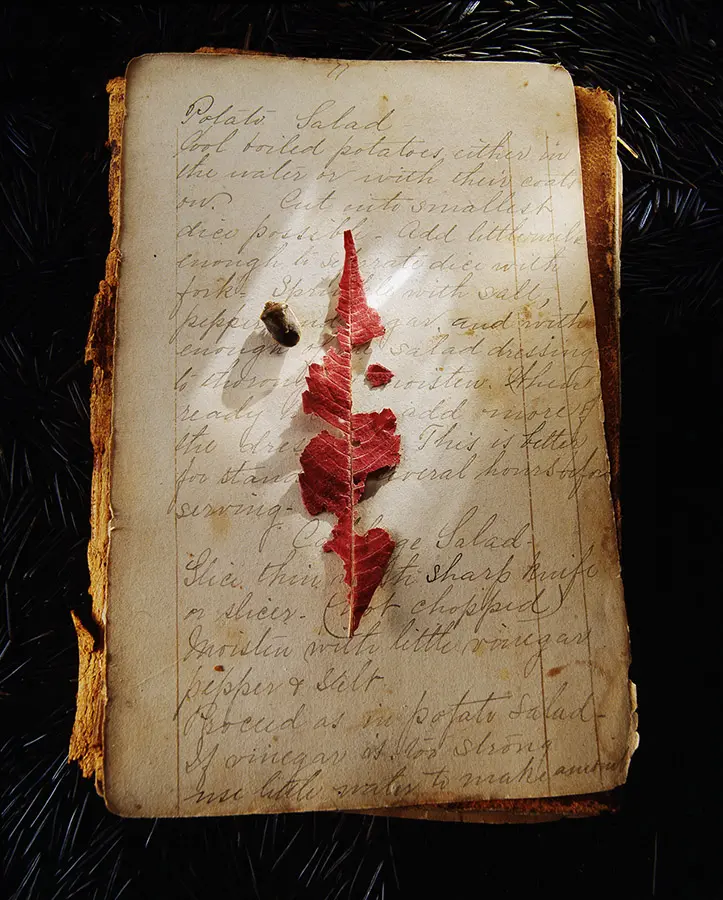 Potato Salad
Cool boiled potatoes either in
the water or with their coats
on. Cut into smallest
dice possible. Add little milk
enough to separate dice with
fork. with salt,
pepper and with
enough salad dressing
to moisten. When
ready add more of
the This is better
for several hours before
serving.
Salad-
Slice thin sharp knife
or slicer. (not chopped)
Moisten with little vinegar
pepper & Salt
Proceed as in potato Salad-
If vinegar is too strong
use little water to make amount